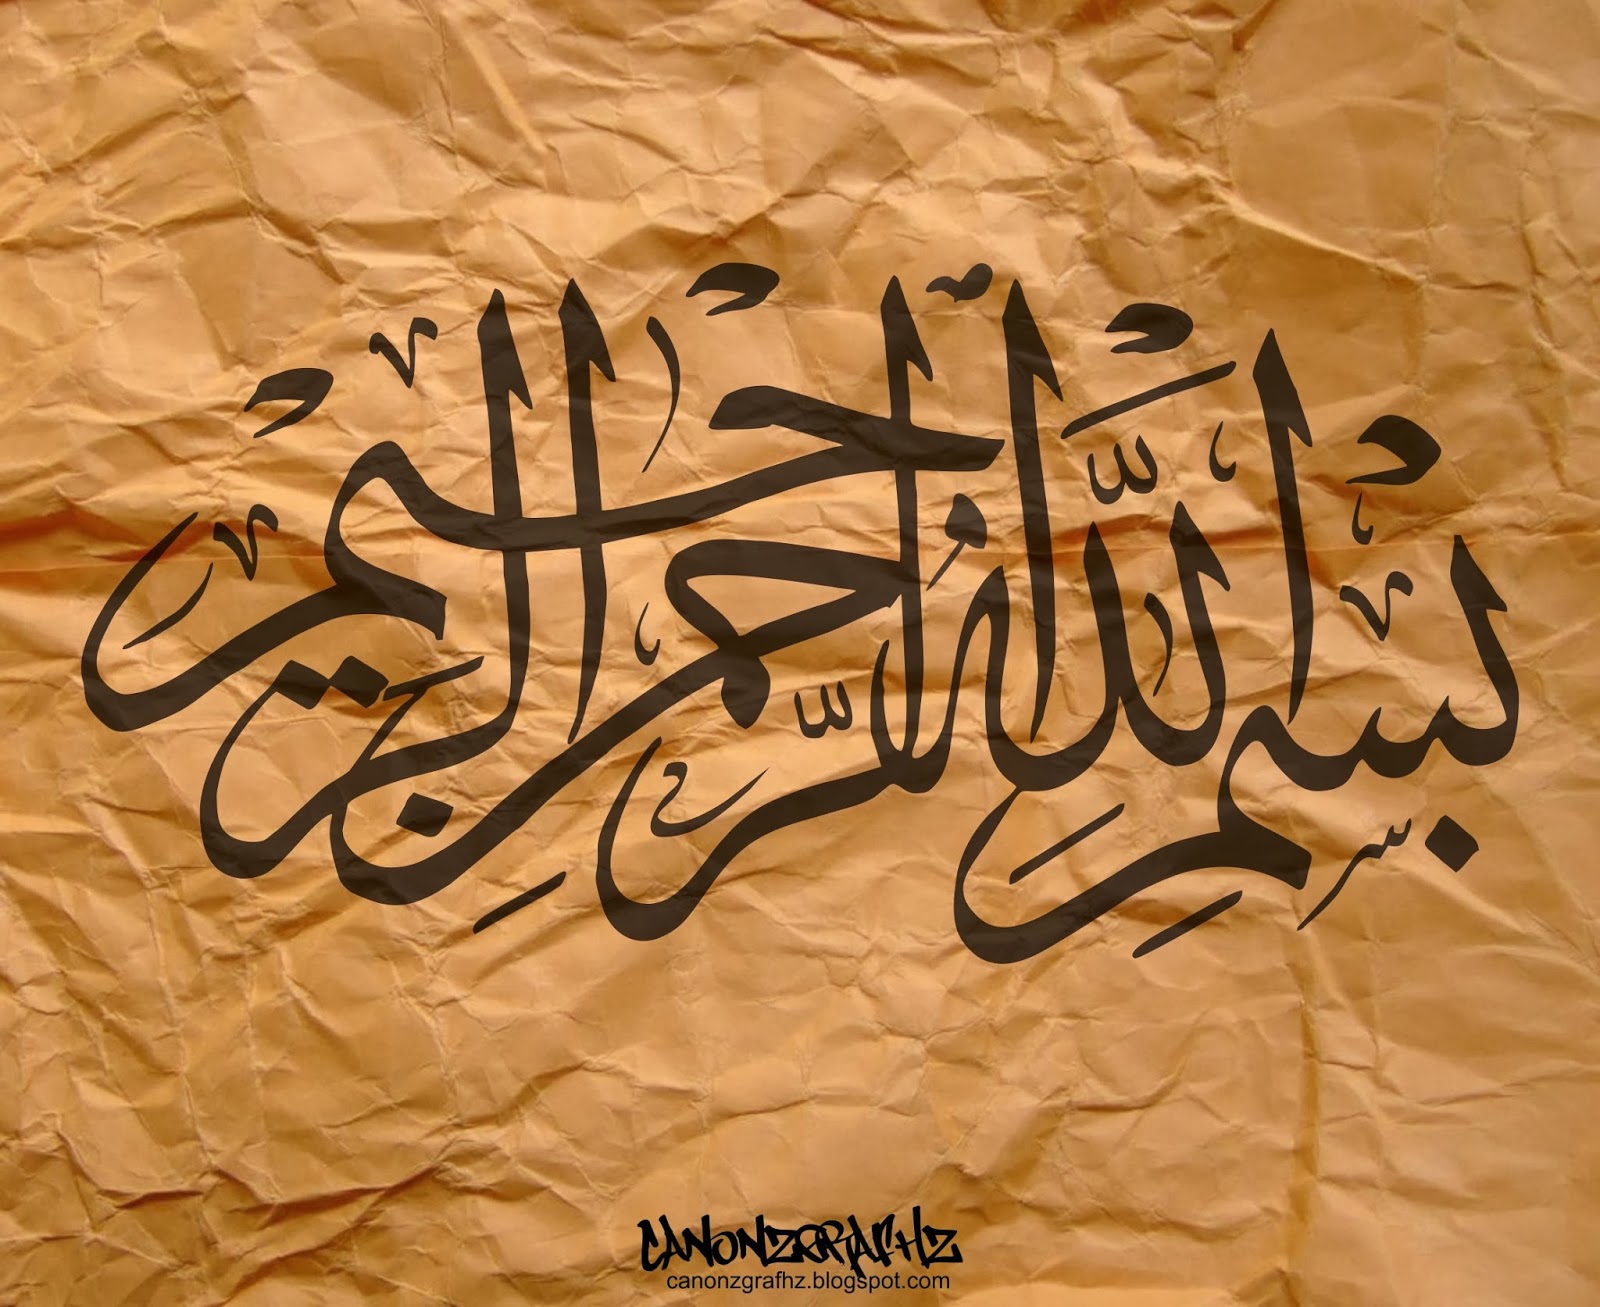 بِسْمِ اللَّهِ الرَّحْمٰنِ الرَّحِيمِ
CANONZGRAFHZ
canonzgrafhz.blogspot.com